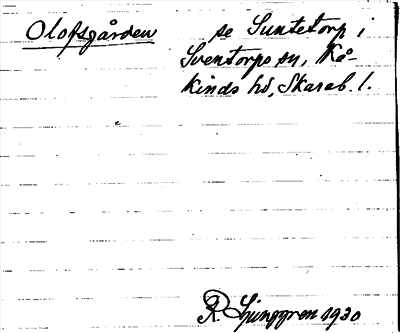 Olofsgården se Suntetorp i
Sventorps sn, Kå-
kinds hd, Skarab. l.
R. Ljunggren 1930